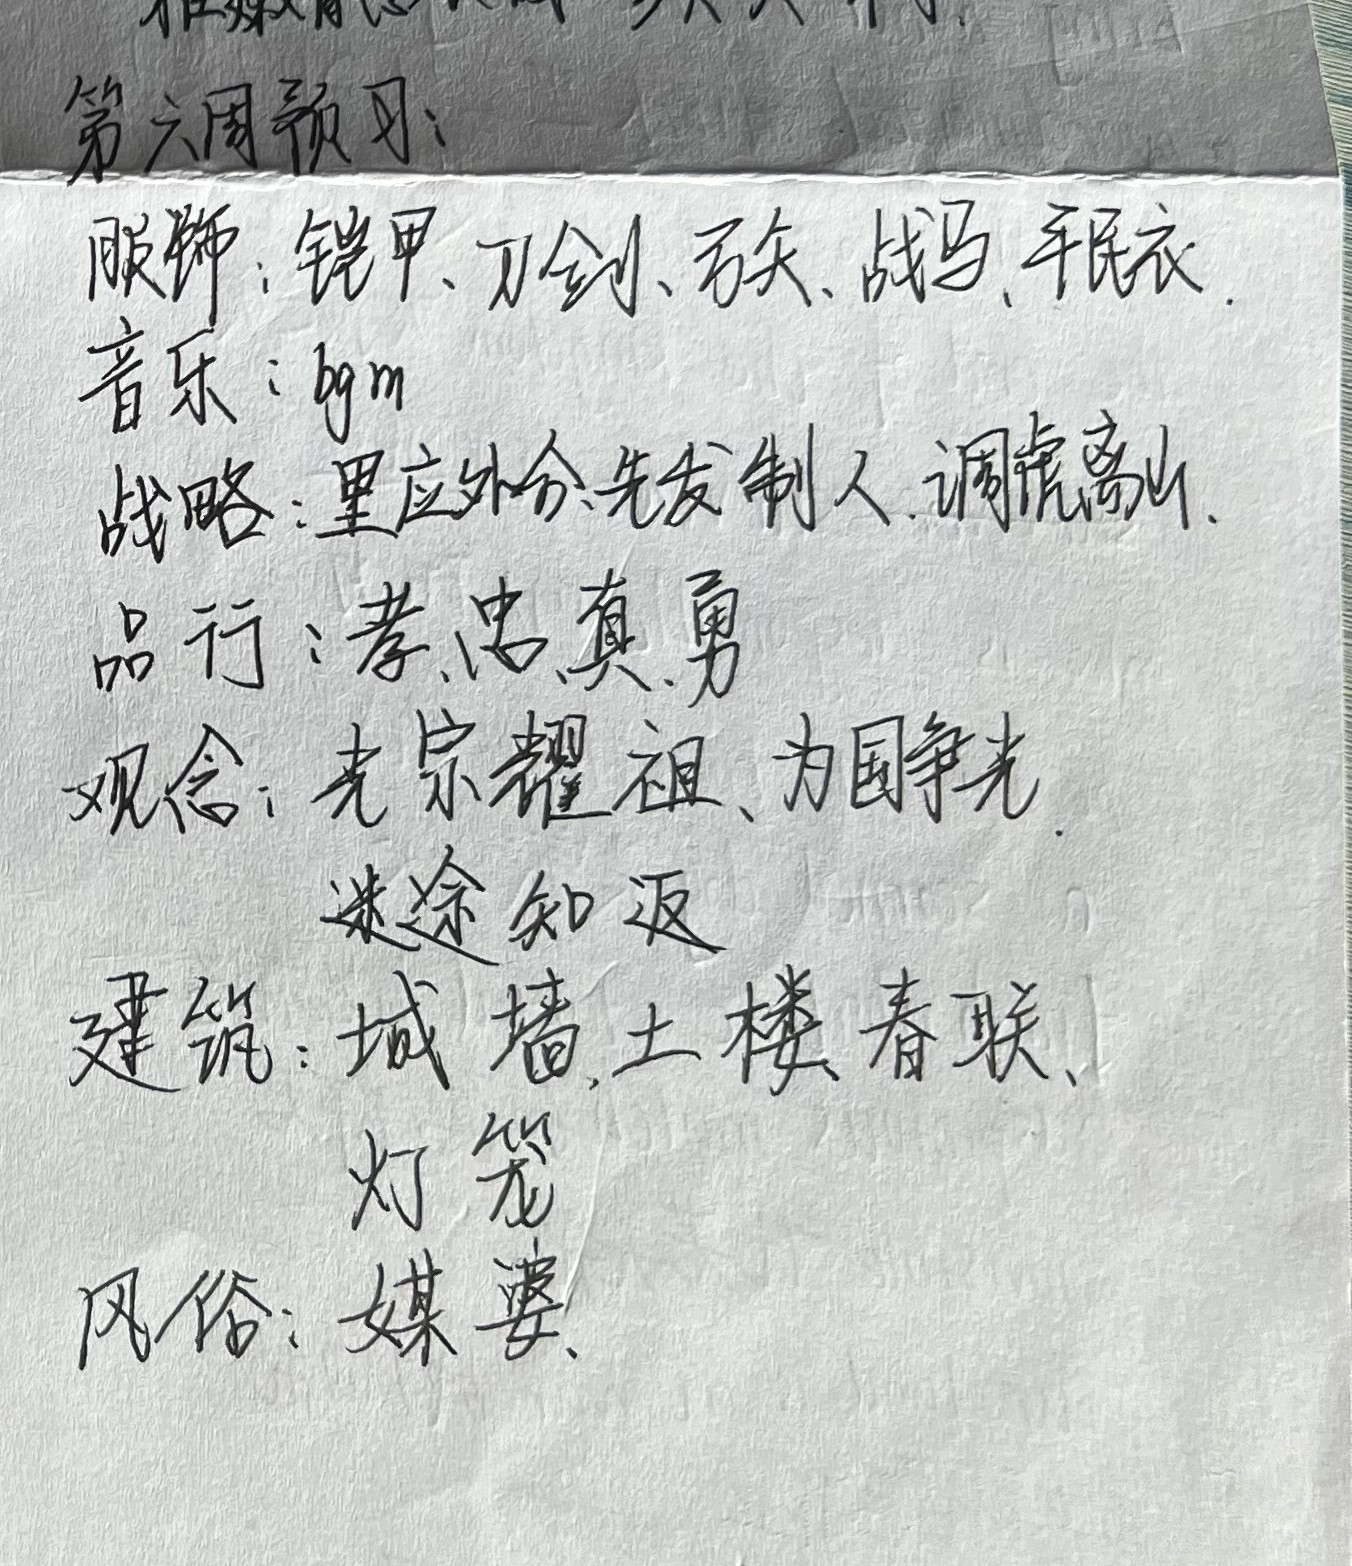 第六周预习:
服饰:铠甲、刀剑、弓矢、战马、平民衣.
音乐:bgm
战略:里应外合、先发制人、调虎离山.
品行:孝、忠、真、勇
观念:光宗耀祖、为国争光.
迷途知返
建筑:城墙、土楼、春联、
灯笼
风俗:媒婆、